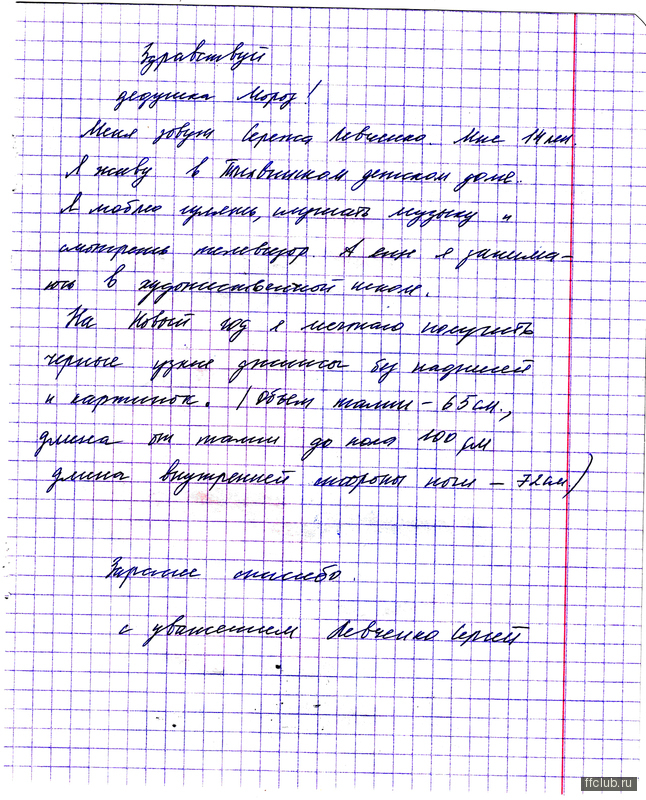 Здравствуй
дедушка Мороз!
Меня зовут Сережа Левченко. Мне 14 лет.
Я живу в Тихвинском детском доме.
Я люблю гулять, слушать музыку и
смотреть телевизор. А еще я занима-
юсь в художественной школе.
На Новый год я мечтаю получить
черные узкие джинсы без надписей
и картинок. (Объем талии – 65 см.,
длина от талии до пола 100 см
длина внутренней стороны ноги – 72 см)
Заранее спасибо.
с уважением Левченко Сергей
ffclub.ru